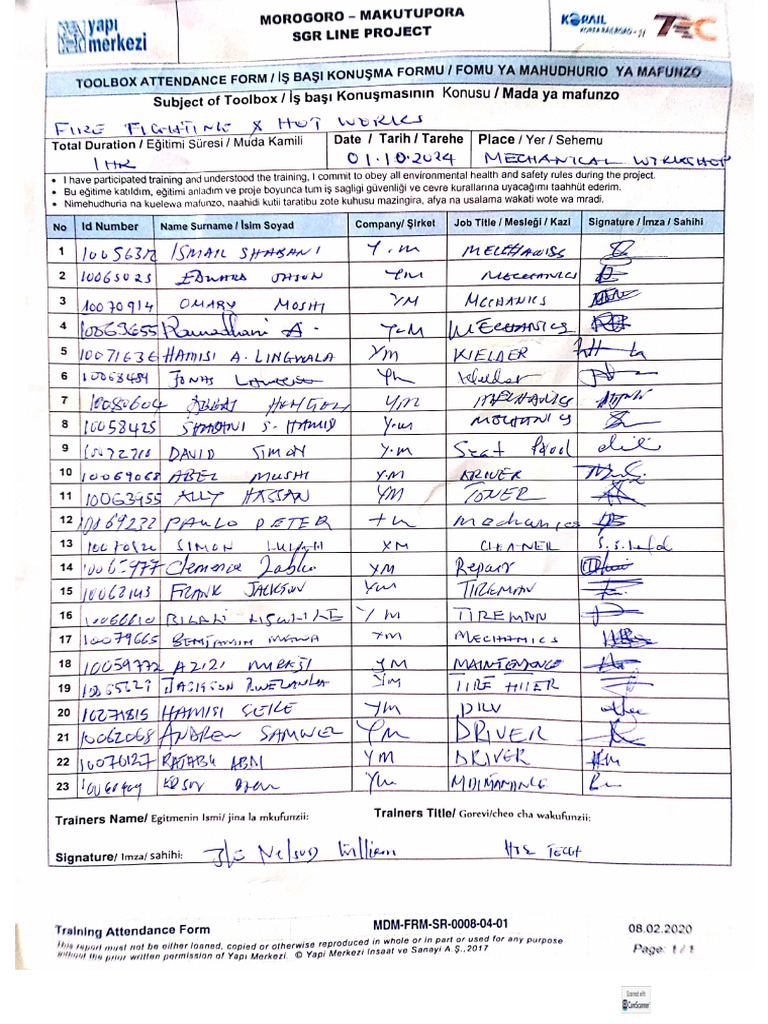 yapı merkezi
MOROGORO – MAKUTUPORA
SGR LINE PROJECT
KORAIL
TOOLBOX ATTENDANCE FORM / İŞ BAŞI KONUŞMA FORMU / FOMU YA MAHUDHURIO YA MAFUNZO
Subject of Toolbox / İş başı Konuşmasının Konusu / Mada ya mafunzo
FIRE FIGHTING & HOT WORKS
Total Duration / Eğitimi Süresi / Muda Kamili Date / Tarih / Tarehe Place / Yer / Sehemu
1HR 01.10.2024 MECHANICAL WORKSHOP
• I have participated training and understood the training, I commit to obey all environmental health and safety rules during the project.
• Bu eğitime katıldım, eğitimi anladım ve proje boyunca tum iş sagligi güvenliği ve cevre kurallarına uyacağımı taahhüt ederim.
• Nimehudhuria na kuelewa mafunzo, naahidi kutii taratibu zote kuhusu mazingira, afya na usalama wakati wote wa mradi.
No Id Number Name Surname / İsim Soyad Company/ Şirket Job Title / Mesleği / Kazi Signature / İmza / Sahihi
1 ISMAIL SHABANI Y.M
2 10065025 EDWARD JASON YM MECHANICS
3 10070914 OMARY MOSHI YM MECHANICS
4 10063655 Ramadhani A. Y-M MECHANICS
5 10071636 HAMISI A. LINGWALA YM KIELDER
6 10068484 JONAS YM
7 10080604 Y/M MECHANICS
8 10058425 SHABANI S. HAMID Y.M MECHANICS
9 DAVID SIMON Y.M
10 10069068 ABEL MUSHI Y.M DRIVER
11 10063955 ALLY HASSAN YM TONER
12 10169232 PAULO PETER Mechanics
13 SIMON YM CLEANER
14 10065977 Clemence YM Repair
15 10062143 FRANK JACKSON YM TIREMAN
16 10066610 Y M TIREMAN
17 10079665 BENJAMIN YM MECHANICS
18 10059772 AZIZI YM MAINTENANCE
19 JACKSON YM TIRE
20 10271815 HAMISI YM DRV
21 10062068 ANDREW SAMWEL YM DRIVER
22 10070127 RAJABU YM DRIVER
23 YM
Trainers Name/ Egitmenin Ismi/ jina la mkufunzii: Trainers Title/ Gorevi/cheo cha wakufunzii:
Signature/ Imza/ sahihi: Nelson William
Training Attendance Form MDM-FRM-SR-0008-04-01 08.02.2020
This report must not be either loaned, copied or otherwise reproduced in whole or in part or used for any purpose
without the prior written permission of Yapı Merkezi. © Yapi Merkezi Insaat ve Sanayi A.Ş.,2017
Page: 1 / 1
Scanned with
CamScanner